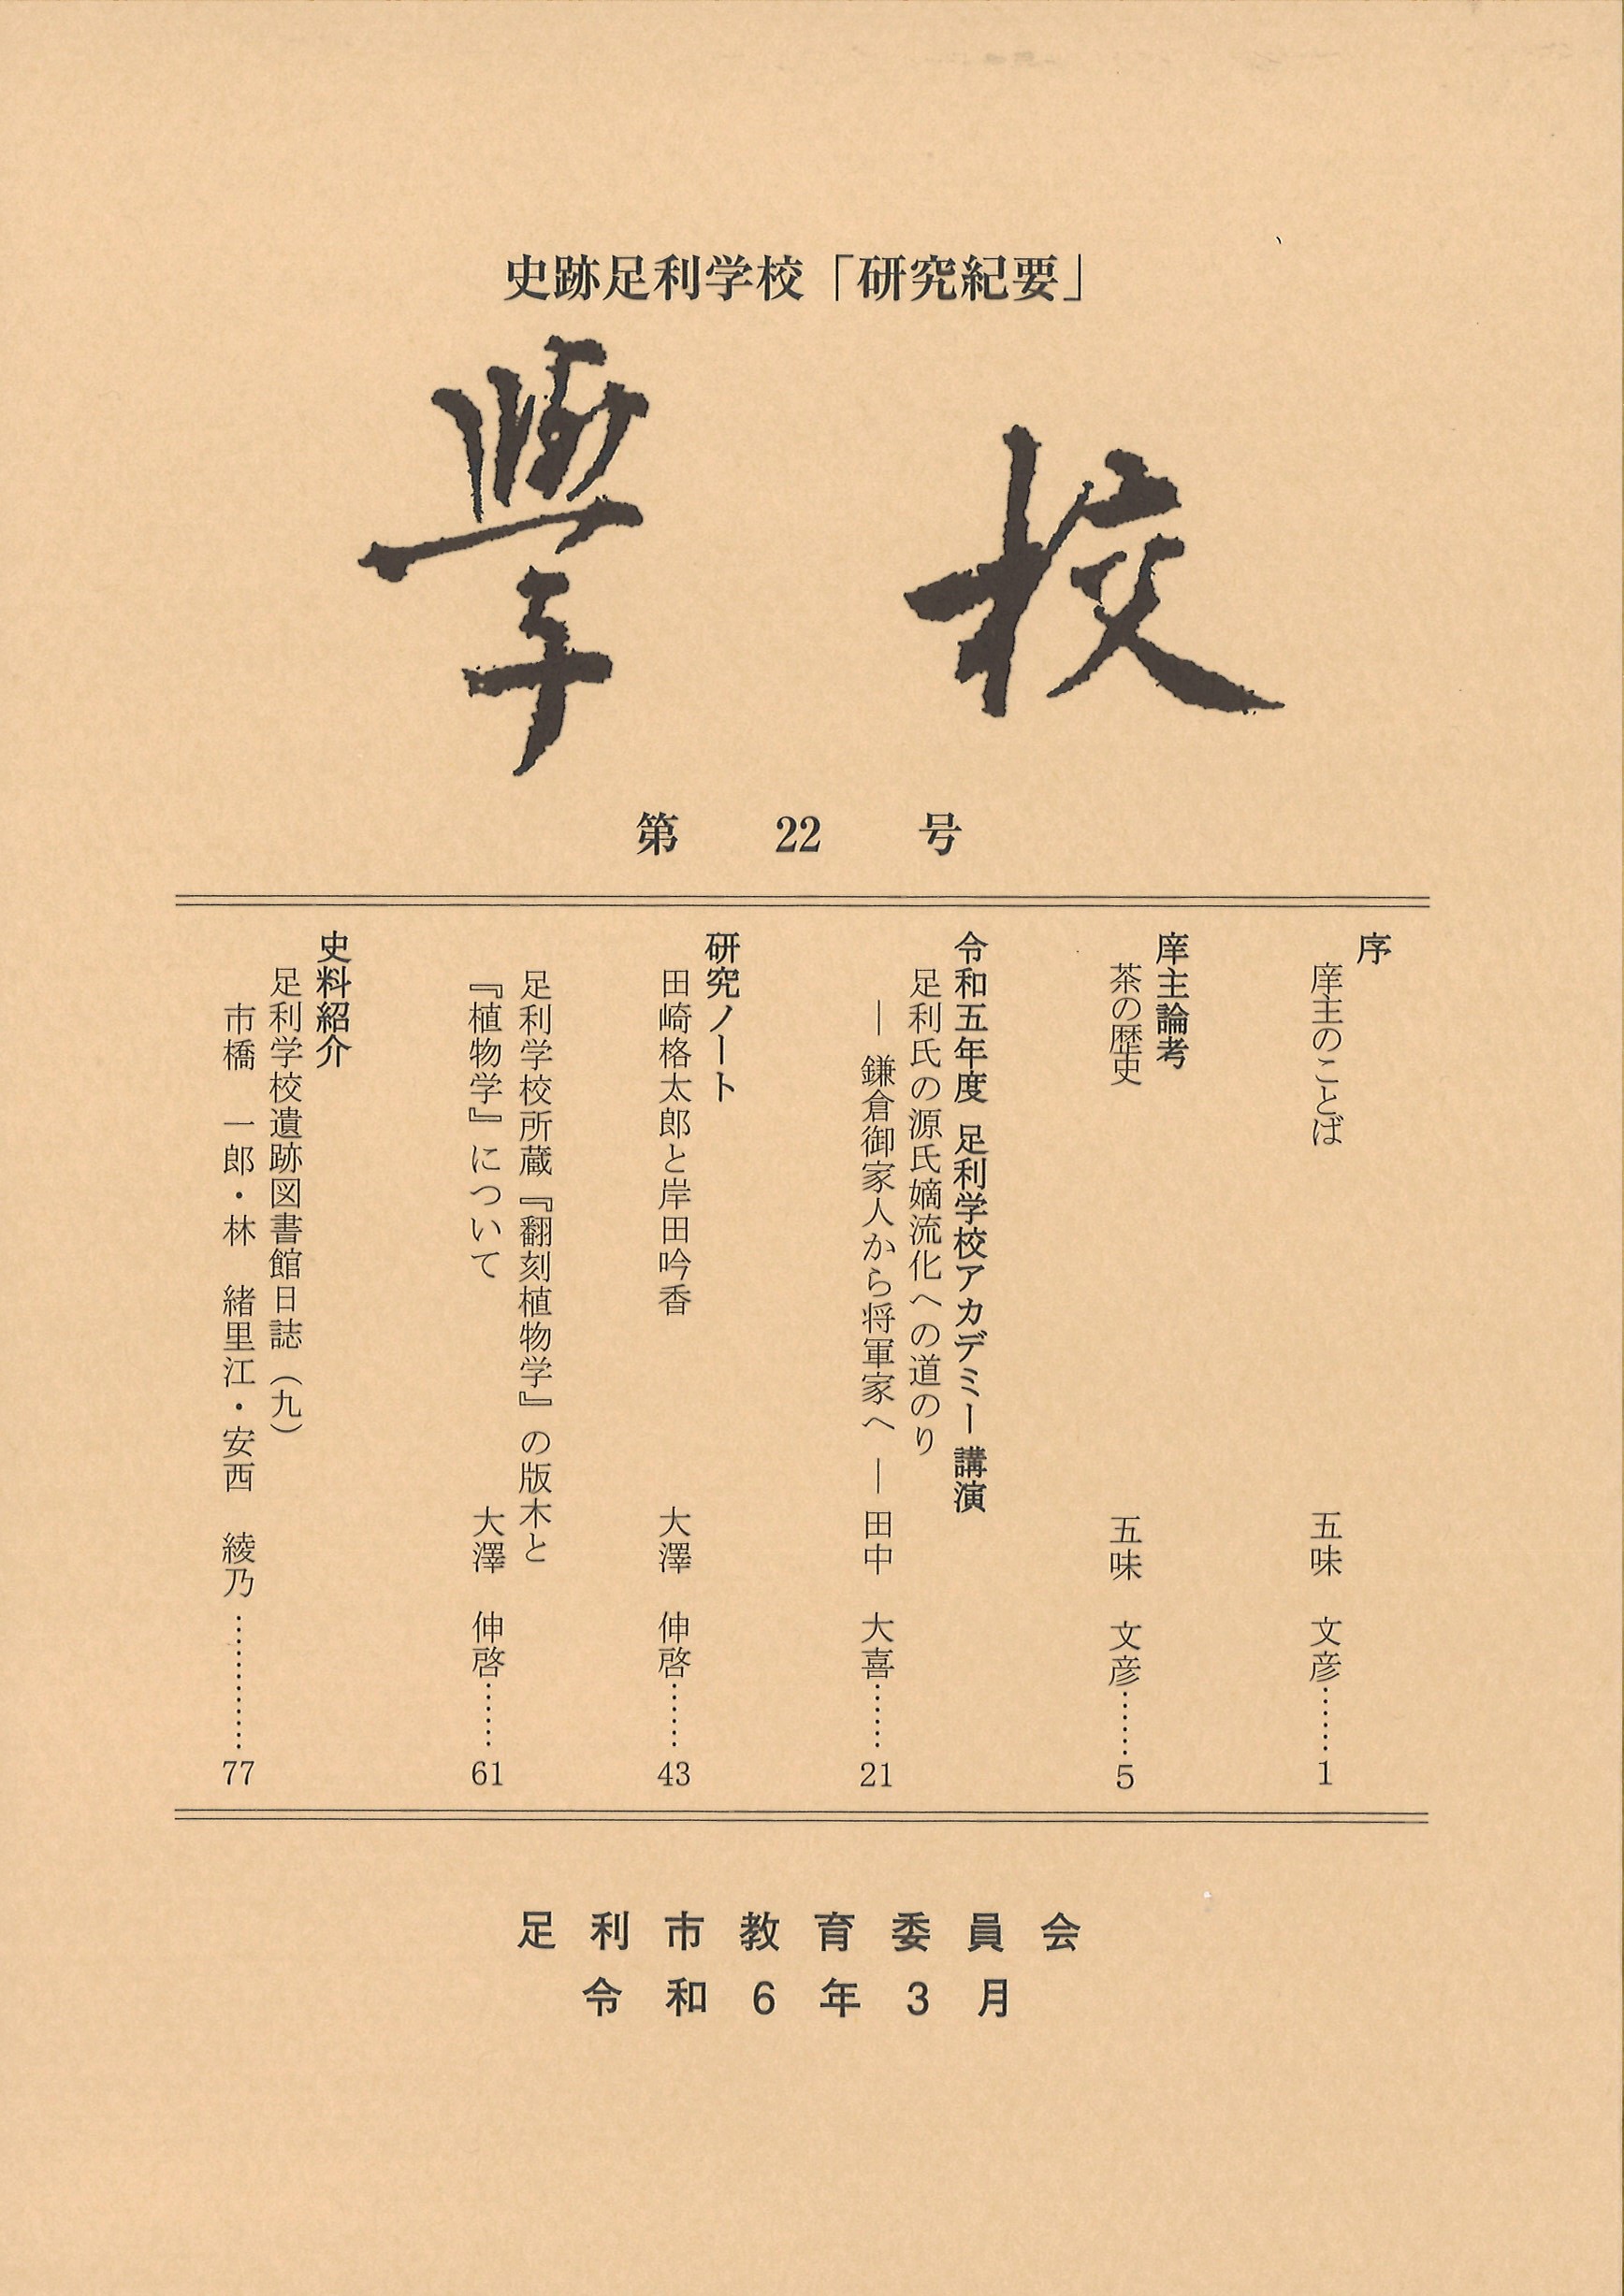 史跡足利学校「研究紀要」
學校
第22号
序
庠主のことば
五味 文彦……1
庠主論考
茶の歴史
五味 文彦……5
令和五年度 足利学校アカデミー講演
足利氏の源氏嫡流化への道のり
― 鎌倉御家人から将軍家へ ― 田中 大喜……21
研究ノート
田崎格太郎と岸田吟香 大澤 伸啓……43
足利学校所蔵『翻刻植物学』の版木と
『植物学』について 大澤 伸啓……61
史料紹介
足利学校遺跡図書館日誌（九）
市橋 一郎・林 緒里江・安西 綾乃…………77
足利市教育委員会
令和6年3月